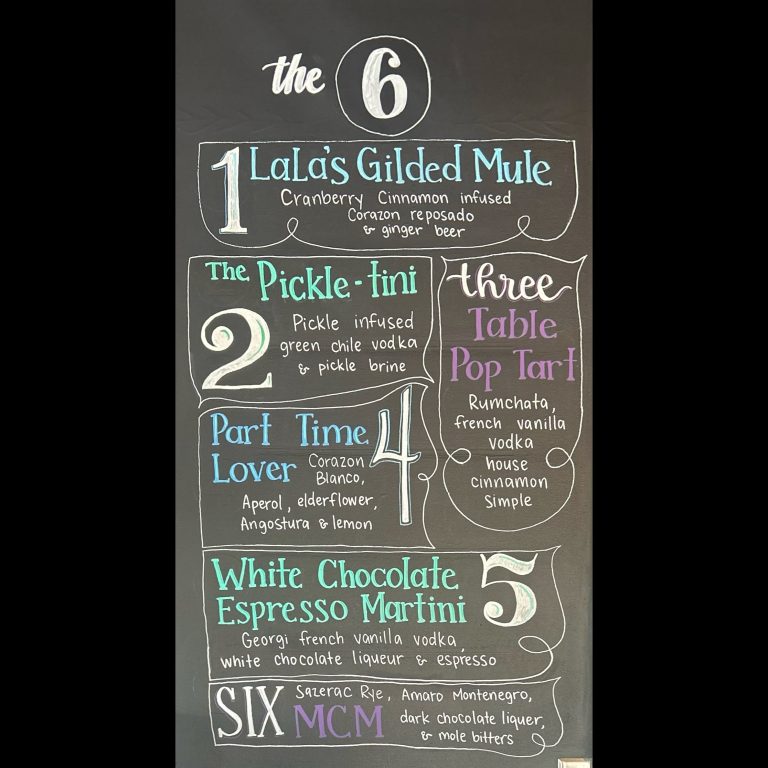 the 6
1 LaLa's Gilded Mule
Cranberry Cinnamon infused
Corazon reposado
& ginger beer
The Pickle-tini
2
Pickle infused
green chile vodka
& pickle brine
three
Table
Pop Tart
Rumchata,
french vanilla
vodka
house
cinnamon
Simple
4
Part Time
Lover
Corazon
Blanco,
Aperol, elderflower,
Angostura & lemon
5
White Chocolate
Espresso Martini
Georgi french vanilla vodka,
white chocolate liqueur & espresso
SIX
MCM
Sazerac Rye, Amaro Montenegro,
dark chocolate liquer,
& mole bitters